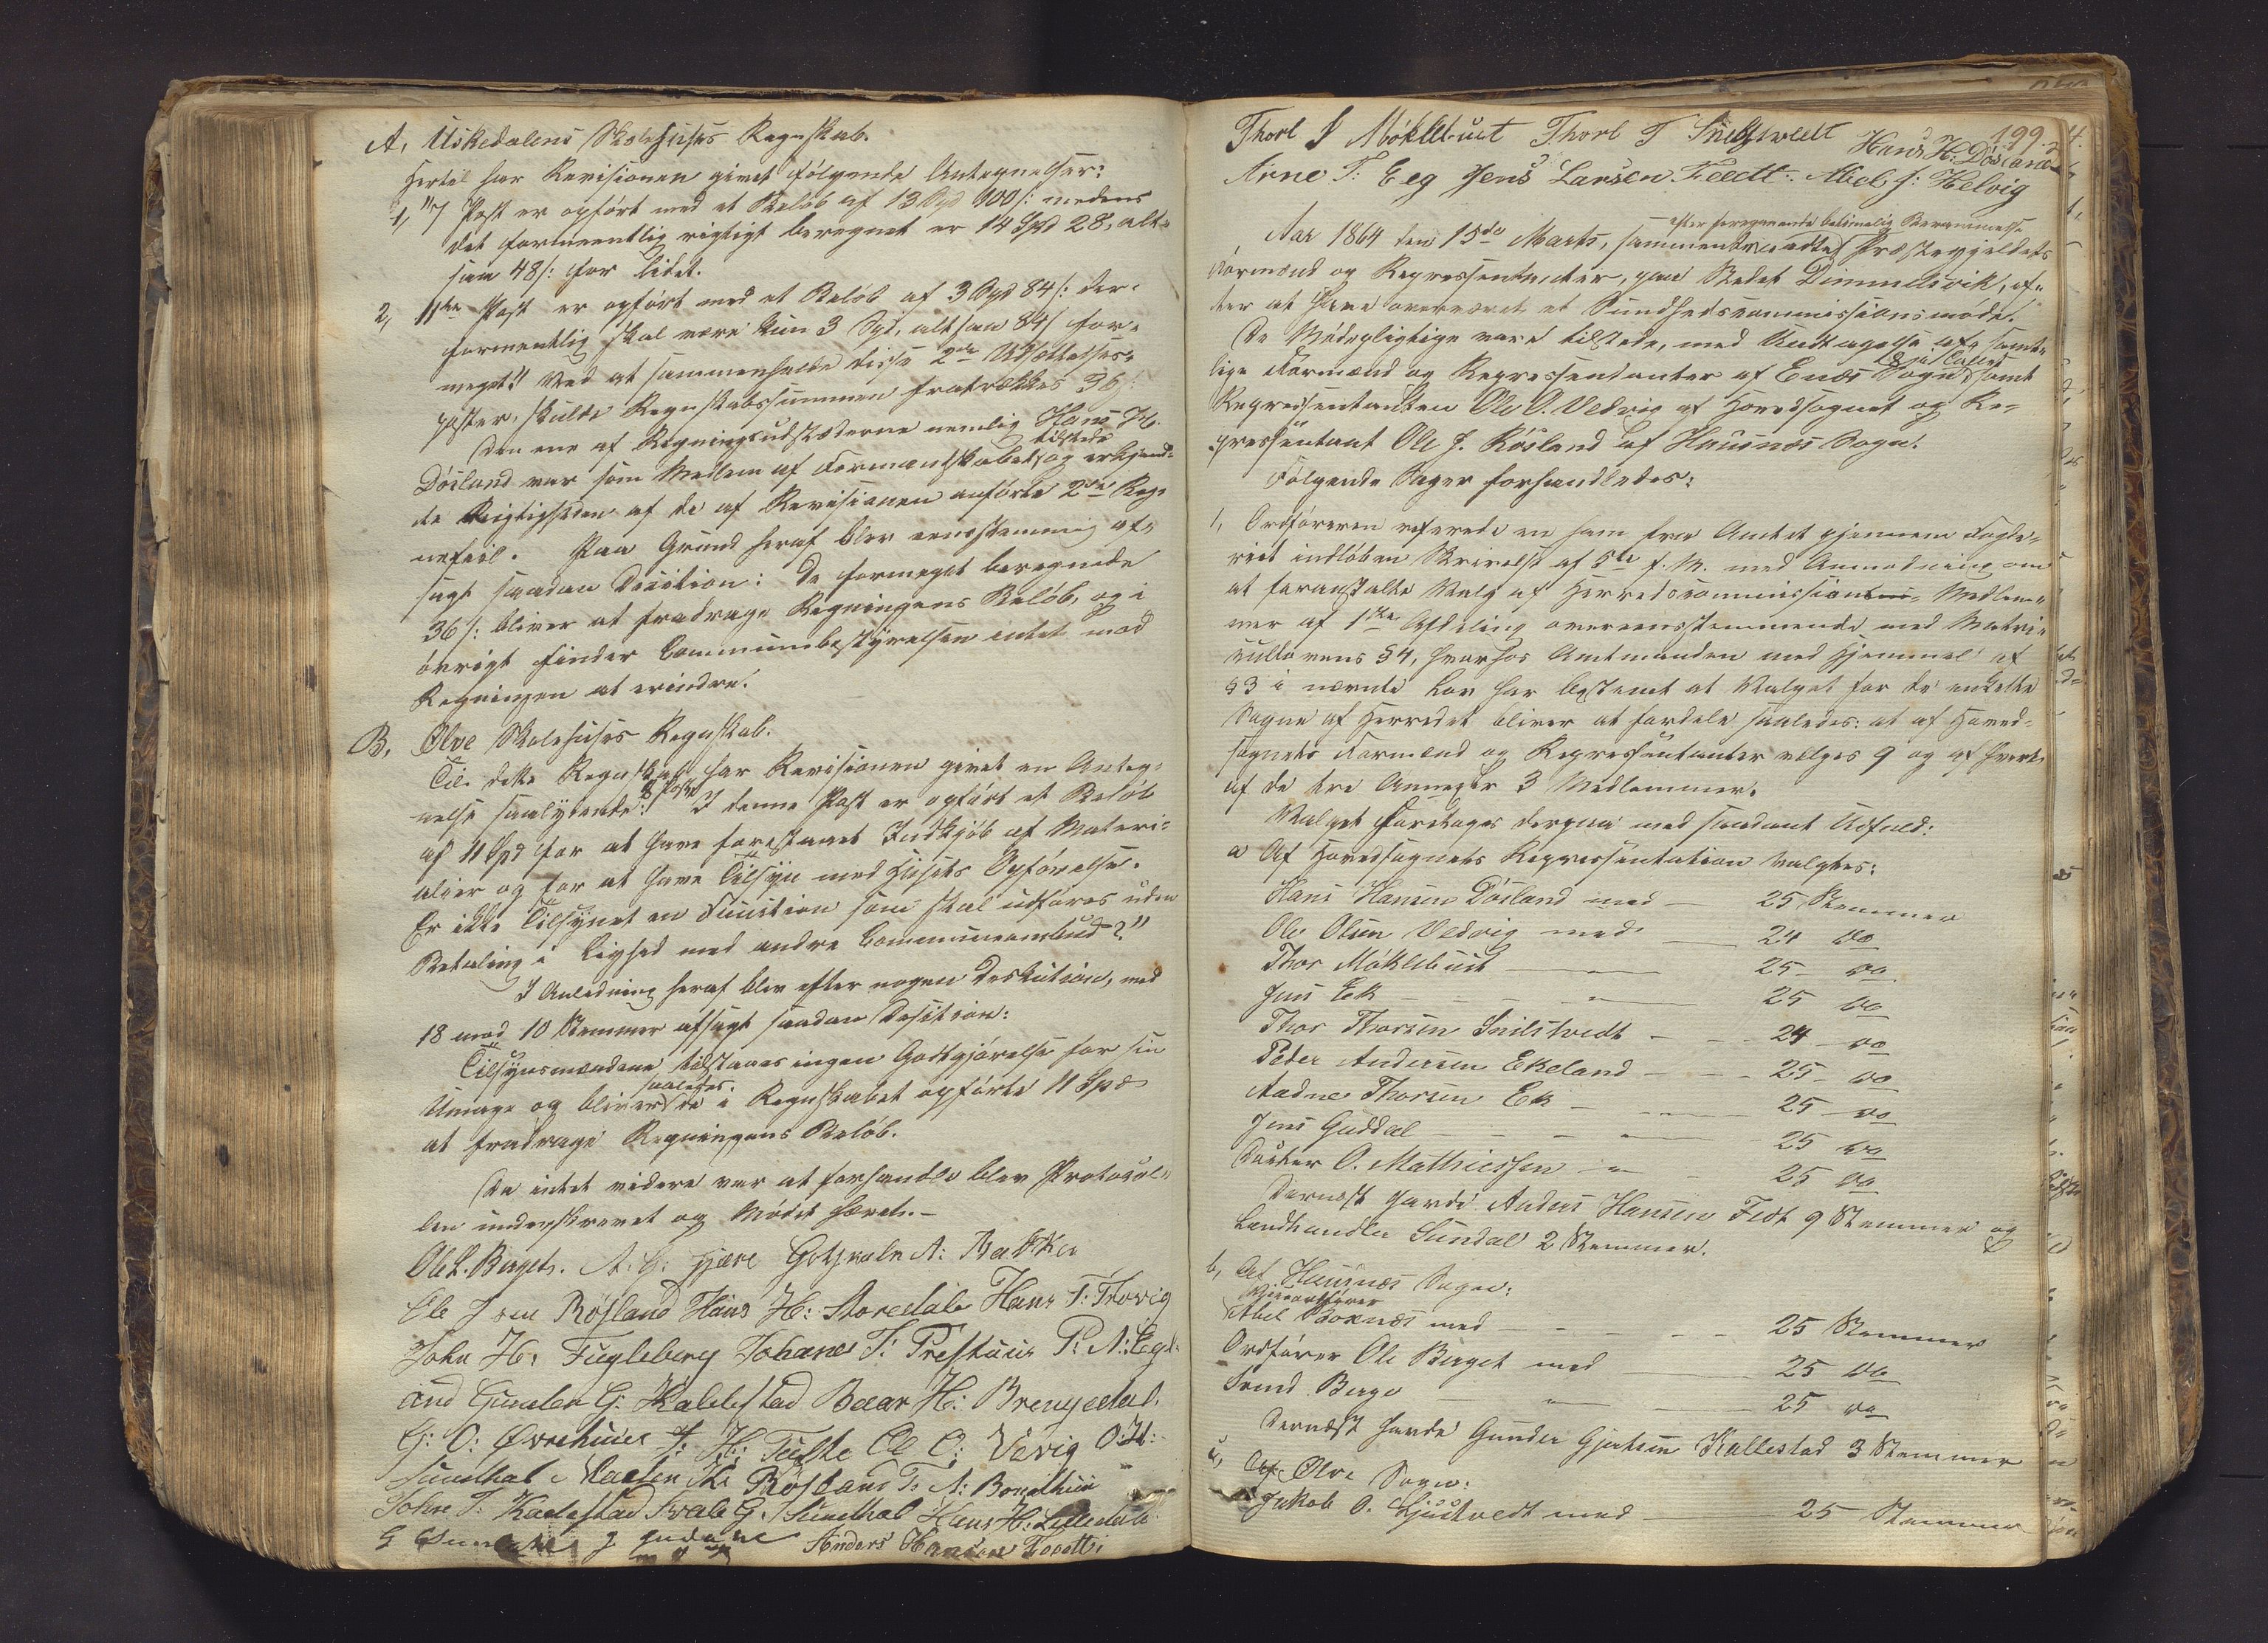 A, Uskedalens Skolehuses Regnskab.
Hertil har Revisionen givet følgende Antegnelser:
1, "7 Post er opført med et Beløb af 13 Spd 100 /: medens
det formeentlig rigtigt beregnet er 14 Spd 28, alt-
saa 48 /: for lidet.
2, 11te Post er opført med et Beløb af 3 Spd 84 /: der
formentlig skal være kun 3 Spd, altsaa 84 / for
meget." Ved at sammenholde disse 2de Udsættelses-
poster, skulde Regnskabssummen fratrækkes 36 /:
Den ene af Regningsudstæderne nemlig Hans H.
Døsland var som Medlem af Formandskabet tilstede og erkjend-
te Rigtigheden af de af Revisionen anførte 2de Reg-
nefeil. Paa Grund heraf blev eensstemmig af-
sagt saadan Decition: De formeget beregnede
36 /: bliver at fradrage Regningens Beløb, og i
øvrigt finder Communebestyrelsen intet mod
Regningen at erindre.
B, Ølve Skolehuses Regnskab.
Til dette Regnskab har Revisionen givet en Anteg-
nelse saalydende: "8 Post I denne Post er opført et Beløb
af 11 Spd for at have forestaaet Indkjøb af Materi-
alier og for at have Tilsyn med Husets Opførelse.
Er ikke Tilsynet en Function som skal udføres uden
Betaling i Lighed med andre Communeombud?"
I Anledning heraf blev efter nogen Deskution, med
18 mod 10 Stemmer afsagt saadan Desition:
Tilsynsmændene tilstaaes ingen Godtgjørelse for sin
Umage og bliver saaledes de i Regnskabet opførte 11 Spd
at fradrage Regningens Beløb.
Da intet videre var at forhandle blev Protocol-
len underskrevet og Mødet hævet.-
Ole L. Berget. A. G. Hjære Gotskalk A: Bakke
Ole J sen Røsland Hans H: Storedale Hans T: Thovig
John H: Fugleberg Johanes J: Prestnus P: N: Ege-
land Gunder G: Kallestad Baar H: Brengedal.
G: O: Øvrehuus J: H: Tufte Ol O: Vevig O: H:
Sundhal Maelen H: Røsland T: A: Bondhuus
John J: Kaldestad Svale G. Sundhal Hans H: Lilledale
G Sundal J Guddal Anders Hansen Feett.
199.
Thorl J Møkelbust Thorl T Snilstveett Hans H: Døsland
Arne T: Eeg Jens Larsen Feett. Abel J: Helvig
Aar 1864 den 15de Marts, efter foregaaende betimelig Berammelse
sammentraadte Præstegjeldets
Formænd og Repressentanter, paa Stedet Dimmelsvik, ef-
ter at have overværet et Sundhedscommissionsmøde.
De Mødepligtige vare tilstede, med Undtagelse af samt-
lige Formænd og Repressentanter af Enæs Sogn, samt
Repressentanten Ole O. Vedvig af Hovedsognet og Re-
pressentant Ole J. Røsland af Husnæs Sogn.
Følgende Sager forhandledes:
1, Ordføreren referede en ham fra Amtet gjennem Fogde-
riet indløben Skrivelse af 5te f. M. med Anmodning om
at foranstalte Valg af Herredscommissions- Medlem-
mer af 1ste Afdeling overeensstemmende med Matri-
cullovens § 4, hvorhos Amtmanden med Hjemmel af
§ 3 i nævnte Lov har bestemt at Valget for de enkelte
Sogne af Herredet bliver at fordele saaledes: at af Hoved-
sognets Formænd og Repressentanter vælges 9 og af hvert
af de tre Annexer 3 Medlemmer.
Valget foretoges derpaa med saadant Udfald:
a Af Hovedsognets Repressentation valgtes:
Hans Hansen Døsland med — 25 Stemmer
Ole Olsen Vedvig med — 24 do
Thor Møklebust — 25 do
Jens Eek — 25 do
Thor Thorsen Snilstvedt — 24 do
Peder Andersen Ekeland — 25 do
Aadne Thorsen Ek — 25 do
Jens Guddal — 25 do
O. Mathiessen — 25 do
Dernæst havde Anders Hansen Fedt 9 Stemmer og
Landhandler Sundal 2 Stemmer.
b, Af Husnæs Sogn:
Viceordfører
Abel Boxnæs med — 25 Stemmer
Ordfører Ole Berget med — 25 do
Svend Berge — 25 do
Dernæst havde Gunder Gjertsen Kallestad 3 Stemmer
c, Af Ølve Sogn:
Jakob O. Ljustvedt med — 25 Stemmer